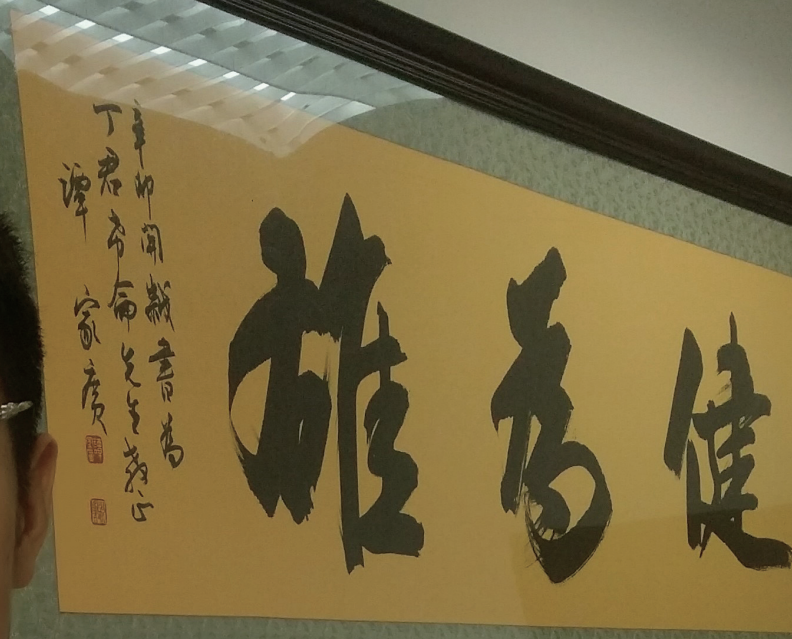 健為雄
辛卯閏秋書為
丁君希侖先生教正
譚家廣